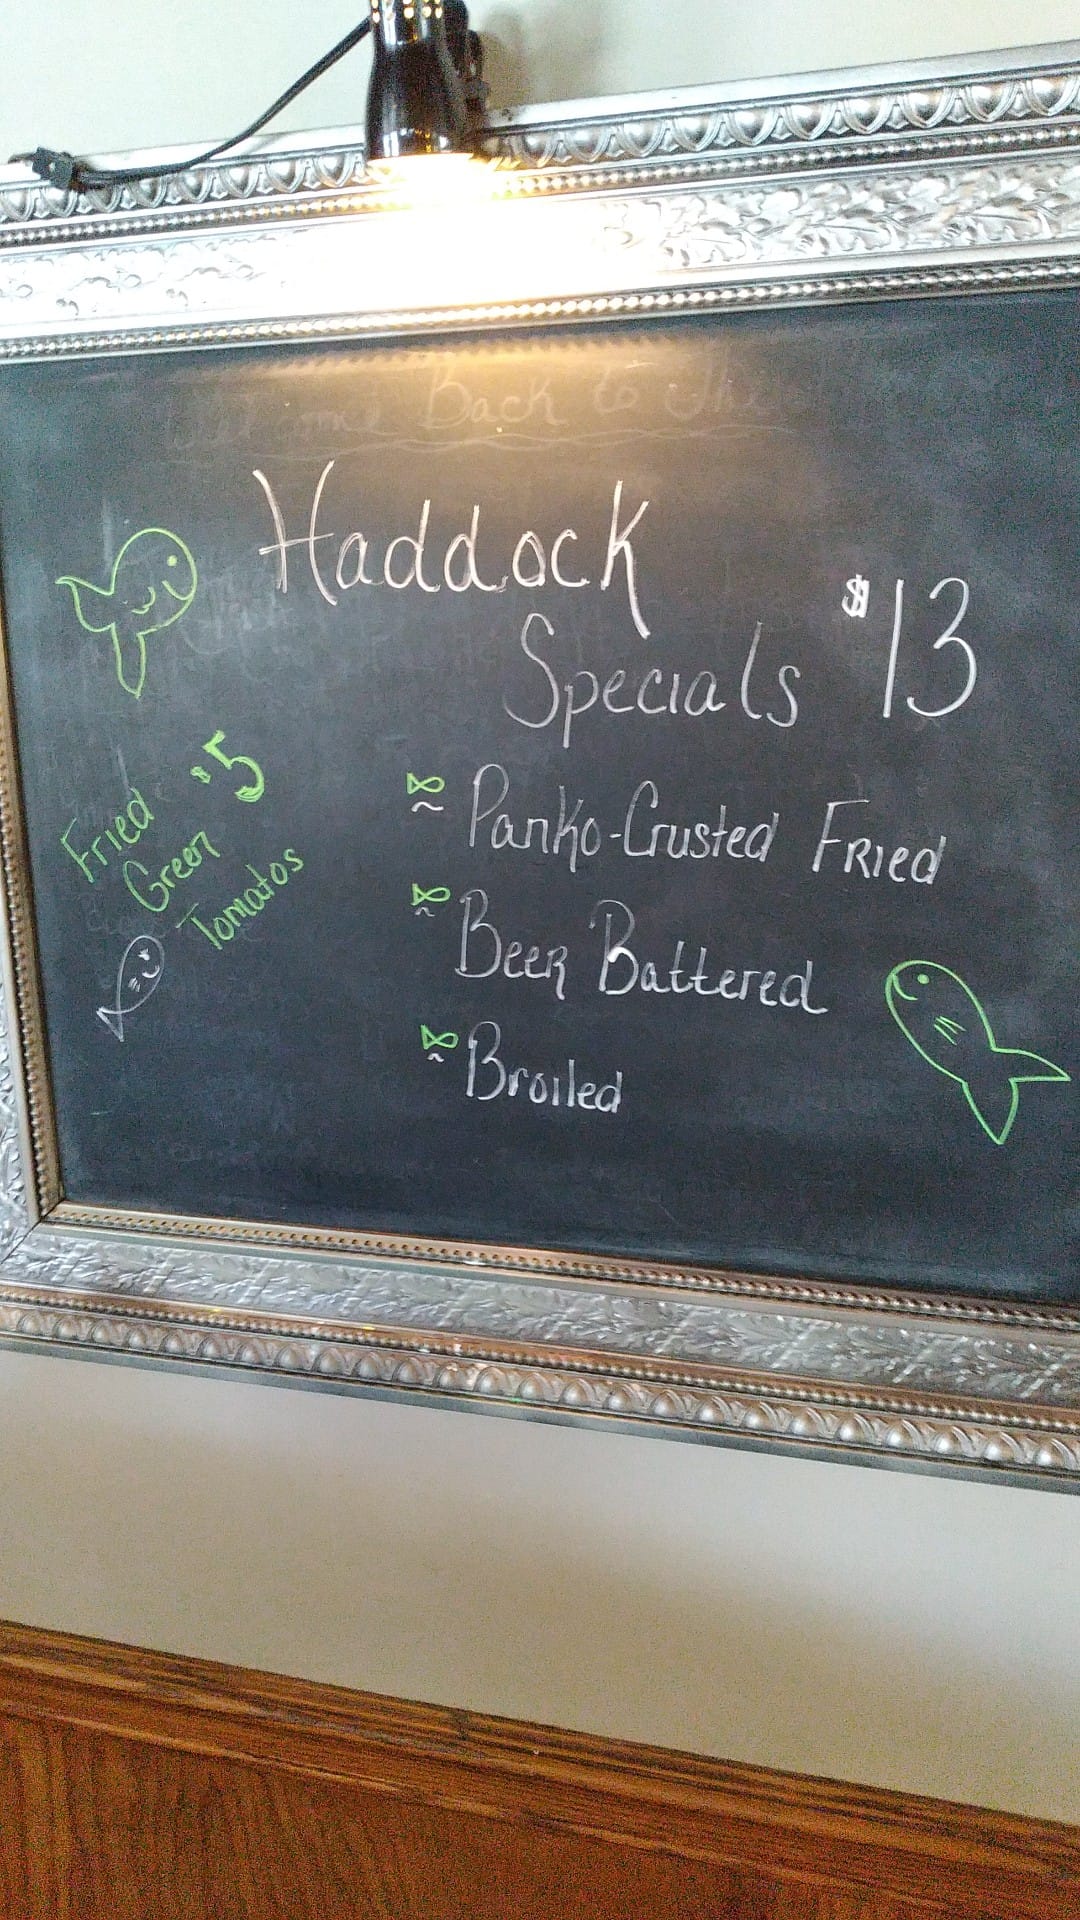 Back to the
Haddock
Specials $13
Panko-Crusted Fried
Beer Battered
Broiled
$5
Fried
Green
Tomatos